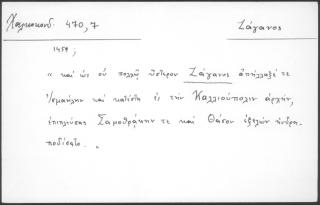 Χαλκοκονδ. 470,7 Ζάγανος
1459 ;
" καὶ ὡς οὐ πολλῷ ὕστερον Ζάγανος ἀπήλλαξέ τε
Ἰσμαήλην καὶ κατέστη ἐς τὴν Καλλιούπολιν ἀρχήν,
ἐπιπλεύσας Σαμοθρᾴκην τε καὶ Θάσον ἐξελὼν ἠνδρα-
ποδίσατο. "